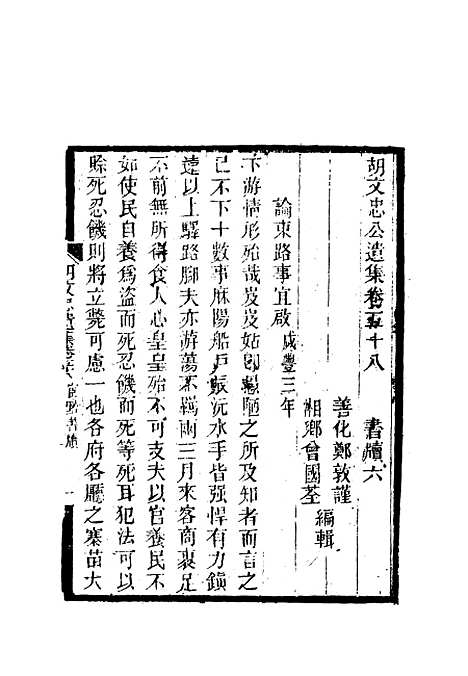 胡文忠公遺集卷五十八　書牘六
善化鄭敦謹
湘鄉曾國荃
編輯
論東路事宜啟　咸豐三年
下游情形殆哉岌岌姑即聽睹之所及知者而言之
已不下十數事麻陽船戶辰沅水手皆强悍有力鎮
遠以上驛路腳夫亦游蕩不羈兩三月來客商裹足
不前無所得食人心皇皇殆不可支夫以官養民不
如使民自養爲盜而死忍饑而死等死耳犯法可以
賒死忍饑則將立斃可慮一也各府各廳之寨苗大